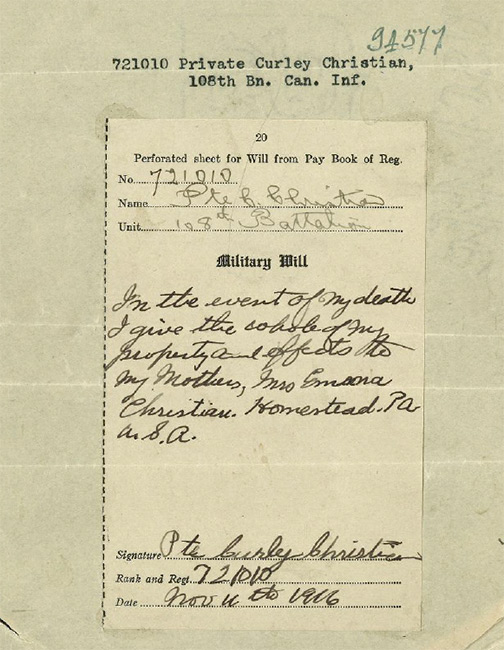 94577
721010 Private Curley Christian,
108th Bn. Can. Inf.
20
Perforated sheet for Will from Pay Book of Reg.
No. 721010
Name Pte C. Christian
Unit 108th Battalion
Military Will
In the event of my death
I give the whole of my
property and effects to
my Mother, Mrs Emma
Christian. Homestead. PA
U.S.A.
Signature Pte Curley Christian
Rank and Regt. 721010
Date Nov 11th 1916